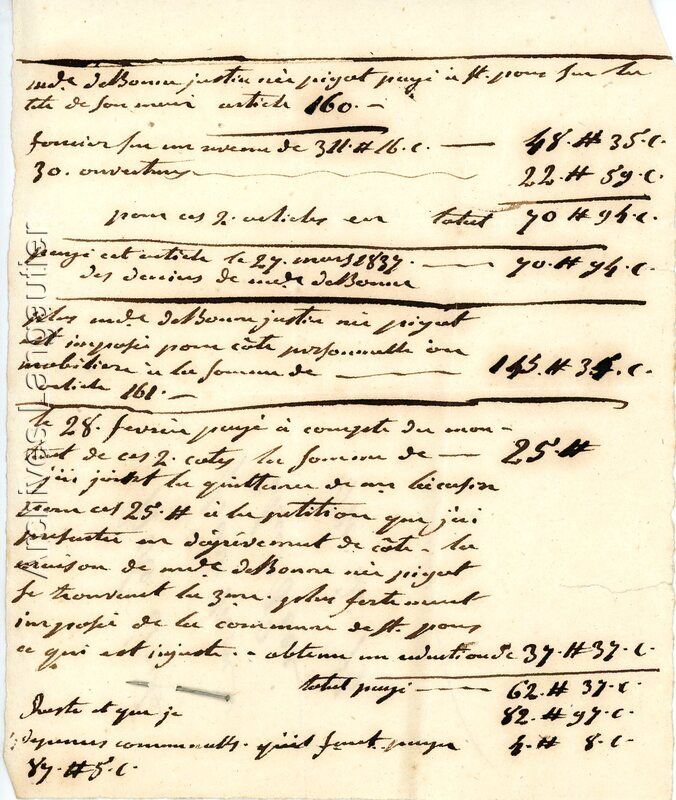 md.e deBonne justin née pigot payé à st. pons sur la
tête de son mari article 160. —
foncier sur un revenu de 311.# 16.c. — 48.# 35.c.
30. ouvertures 22.# 59.c.
pour ces 2. articles en total 70 # 94.c.
payé cet article le 27. mars 1837. — 70.# 94.c.
des deniers de md.e deBonne
plus md.e deBonne justin née pigot
est imposée pour côte personnelle ou
mobilière à la somme de — 145.# 34.c.
article 161. —
le 28. fevrier payé à compte du mon-
tant de ces 2. cotes la somme de — 25.#
j'ai joint la quittance de
ces 25.# à la petition que j'ai
presentée en dégrèvement de côte - la
maison de md.e deBonne née pigot
se trouvant la 3me. plus fortement
imposée de la commune de st. pons
ce qui est injuste. - obtenu un reduction de 37.# 37.c.
total payé — 62.# 37.c.
Reste et que je 82.# 97.c.
depenses qu'il faut payer 4.# 8.c.
87.# 5.c.
Archives Languetier